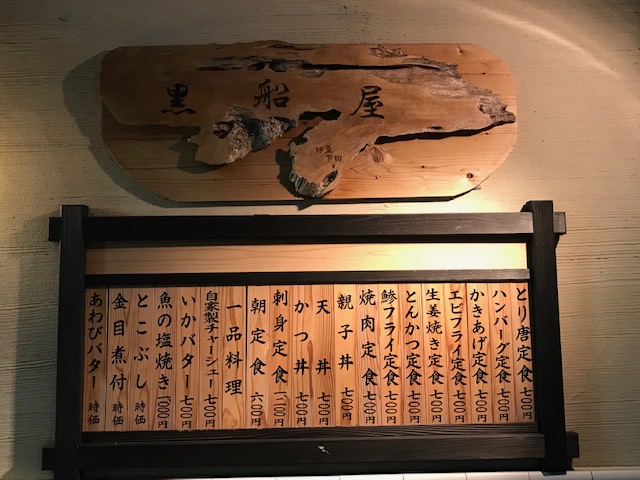 黒船屋
とり唐定食 七〇〇円
ハンバーグ定食 七〇〇円
かきあげ定食 七〇〇円
エビフライ定食 七〇〇円
生姜焼き定食 七〇〇円
とんかつ定食 七〇〇円
鯵フライ定食 七〇〇円
焼肉定食 七〇〇円
親子丼 七〇〇円
天丼 七〇〇円
かつ丼 七〇〇円
刺身定食
朝定食 六〇〇円
一品料理
自家製チャーシュー 七〇〇円
いかバター 七〇〇円
魚の塩焼き 一、〇〇〇円
とこぶし 時価
金目煮付 時価
あわびバター 時価